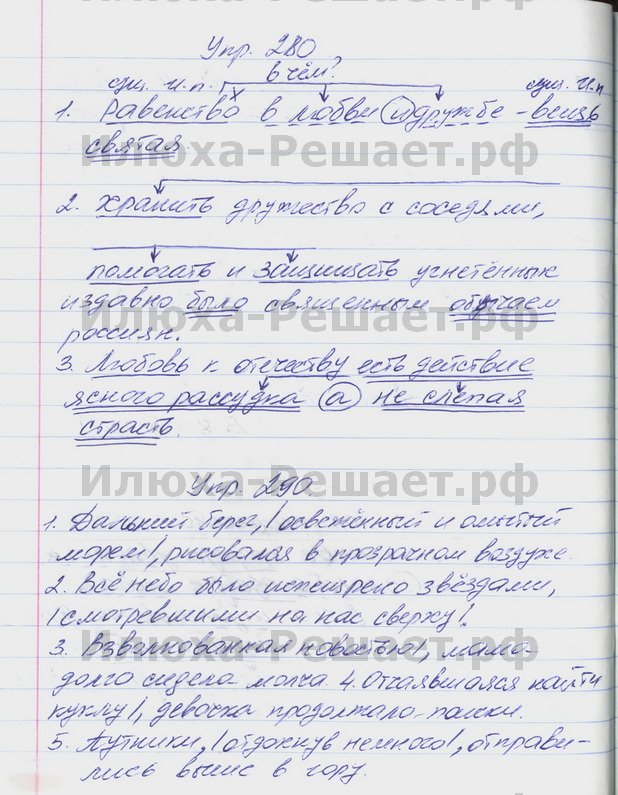 Упр. 280
в чём?
сущ. И.п. сущ. И.п
1. Равенство в любви и дружбе - вещь
святая.
Илюха-Решает.рф
2. Хранить дружество с соседями,
помогать и защищать угнетённых
издавно было священным обычаем
россиян.
Илюха-Решает.рф
3. Любовь к отечеству есть действие
ясного рассудка а не слепая
страсть.
Илюха-Решает.рф
Упр. 290.
1. Дальний берег, | освежённый и омытый
морем |, рисовался в прозрачном воздухе.
2. Всё небо было испещрено звёздами,
| смотревшими на нас сверху |.
Илюха-Решает.рф
3. Взволнованная новостью |, мама
долго сидела молча. 4. Отчаявшаяся найти
куклу |, девочка продолжала поиски.
5. Путники, | отдохнув немного |, отправи-
лись выше в гору.
Илюха-Решает.рф